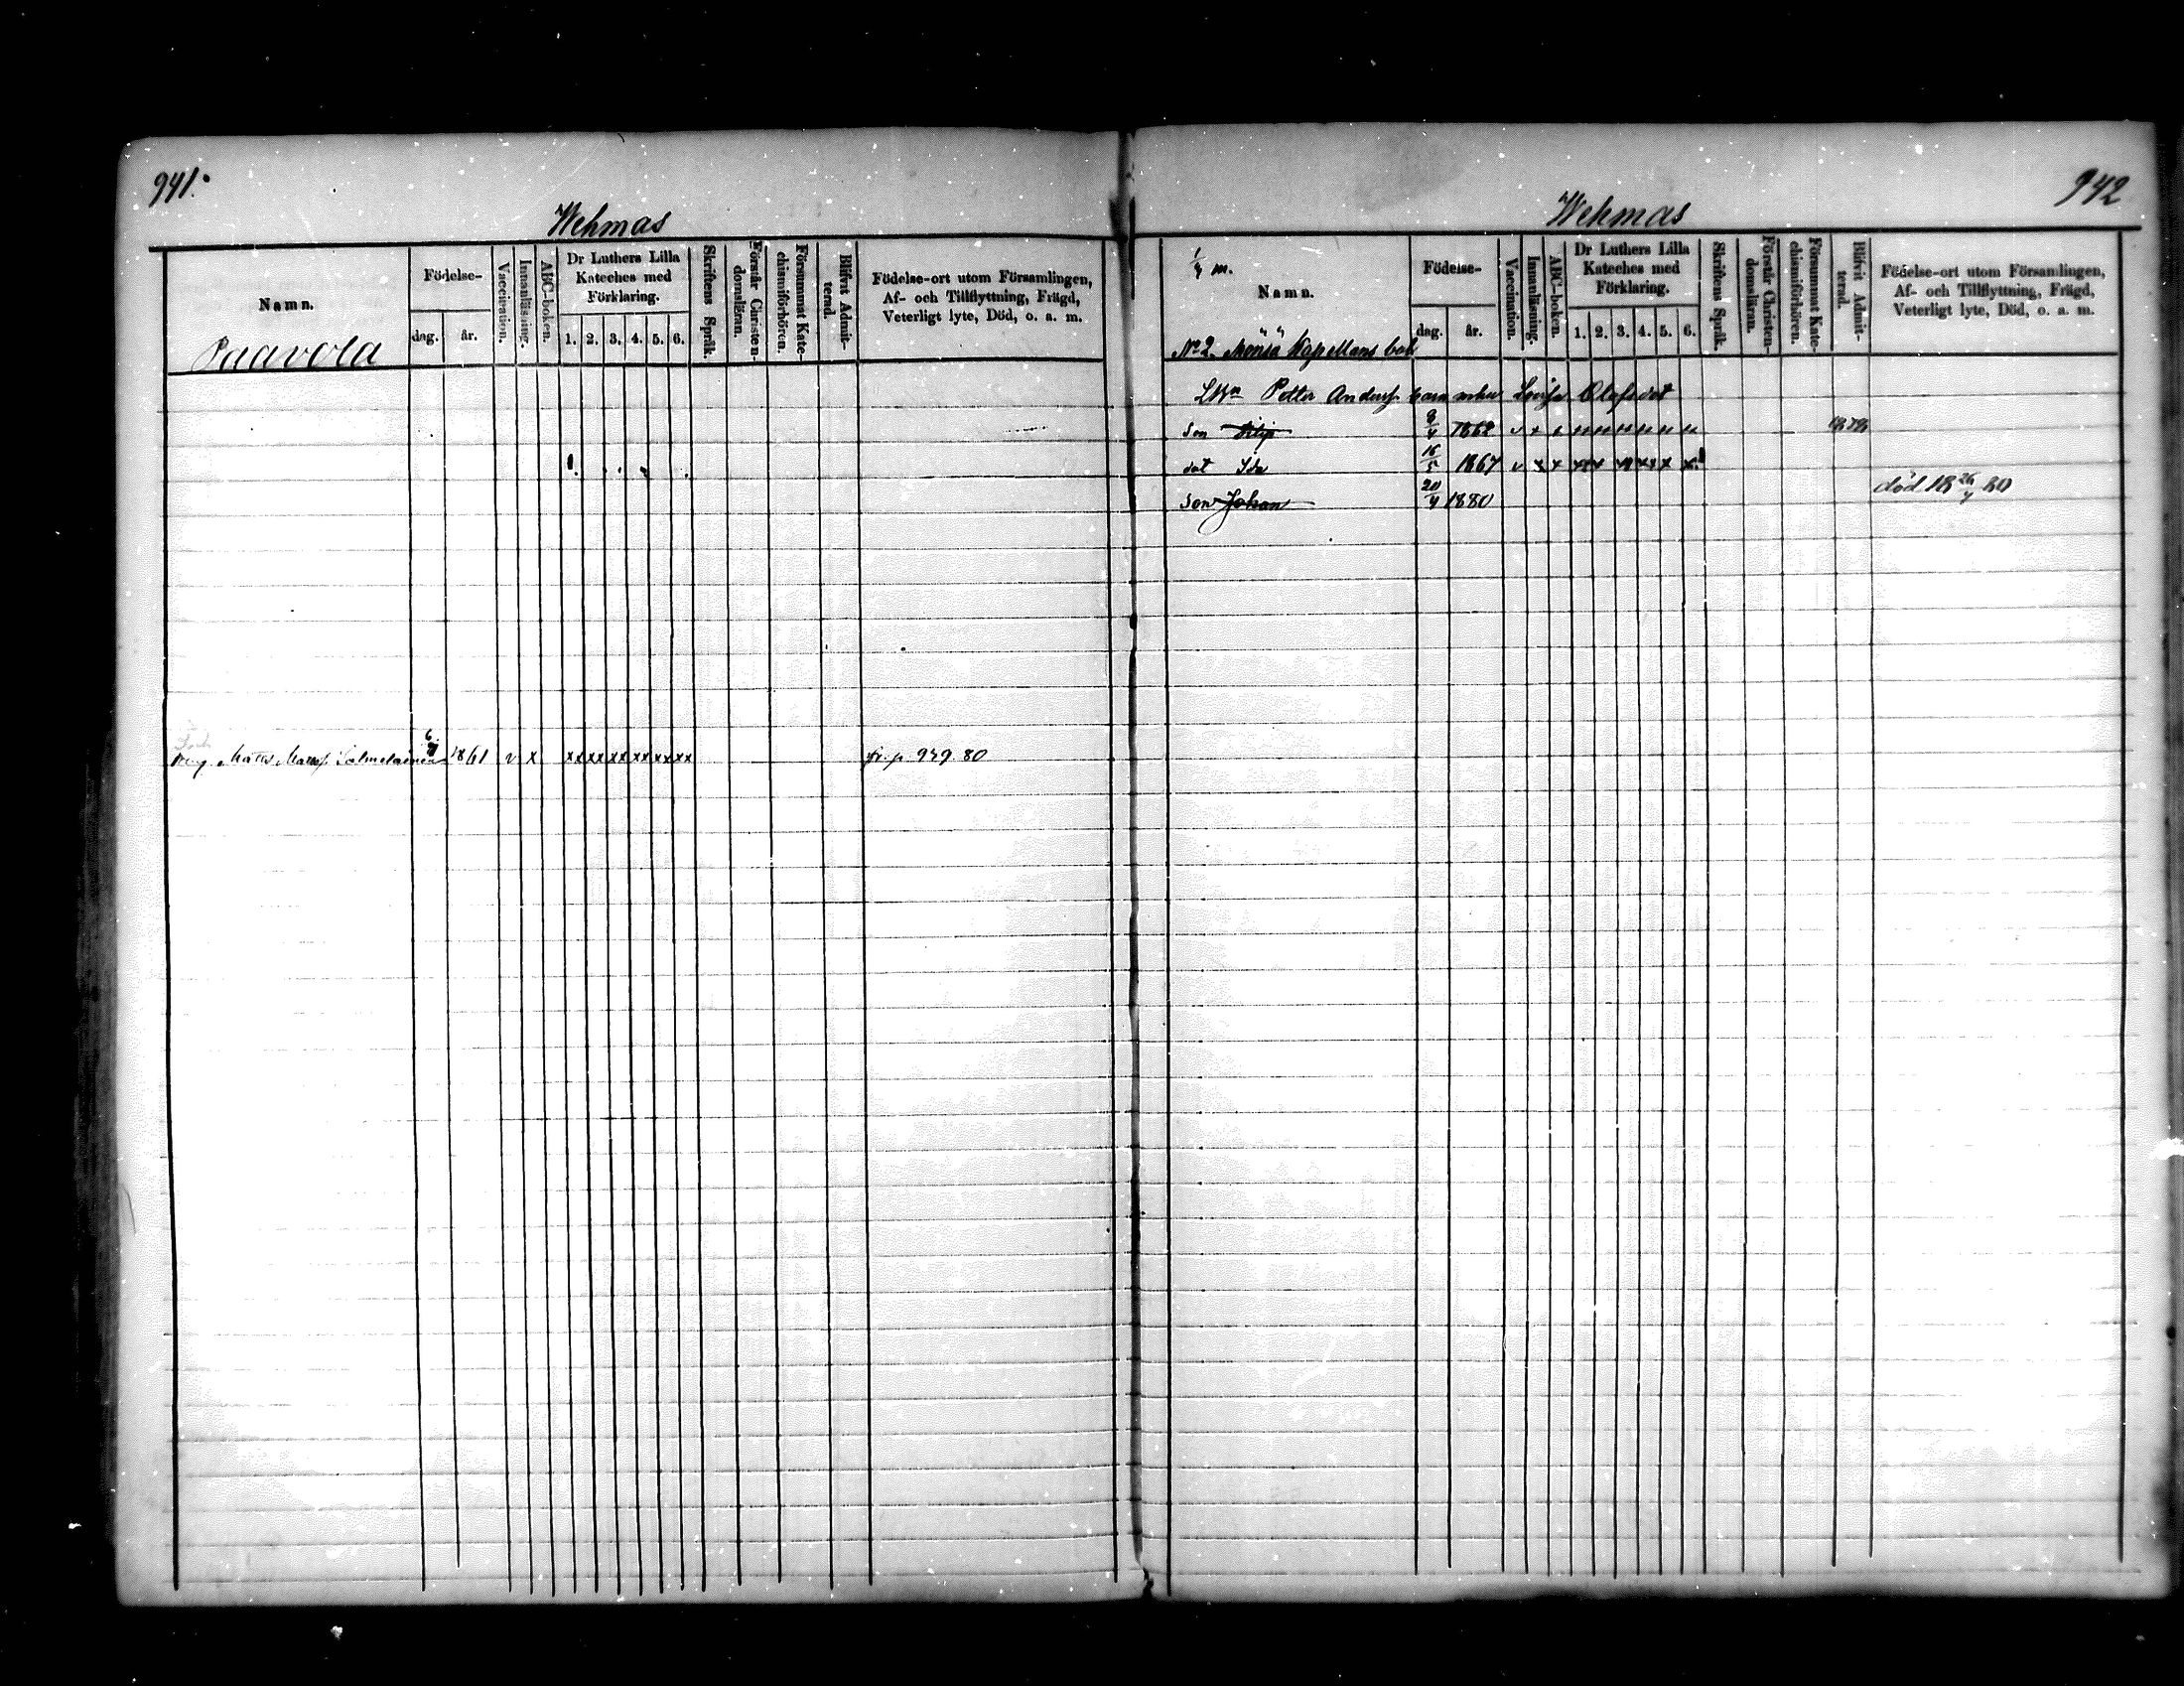 941.
Wehmas
Namn.
Födelse-
dag.
år.
Vaccination.
Innanläsning.
ABC-boken.
Dr Luthers Lilla
Kateches med
Förklaring.
1. 2. 3. 4. 5. 6.
Skriftens Språk.
Förstår Christen-
domsläran.
Försummat Kate-
chismiförhören.
Blifvit Admit-
terad.
Födelse-ort utom Församlingen,
Af- och Tillflyttning, Frägd,
Veterligt lyte, Död, o. a. m.
Paavola
Matts Matss. Salmelainen 6 1861 v x xx xx xx xx xx xx fr. p. 949. 80
942
Wehmas
1/4 m.
Namn.
Födelse-
dag.
år.
Vaccination.
Innanläsning.
ABC-boken.
Dr Luthers Lilla
Kateches med
Förklaring.
1. 2. 3. 4. 5. 6.
Skriftens Språk.
Förstår Christen-
domsläran.
Försummat Kate-
chismiförhören.
Blifvit Admit-
terad.
Födelse-ort utom Församlingen,
Af- och Tillflyttning, Frägd,
Veterligt lyte, Död, o. a. m.
No 2. Kapellans bol
Petter Anderss barn Lovisa Olofsdot
son 1862
dot Ida 16/5 1867
son Johan 20/4 1880 död 18 26/4 80